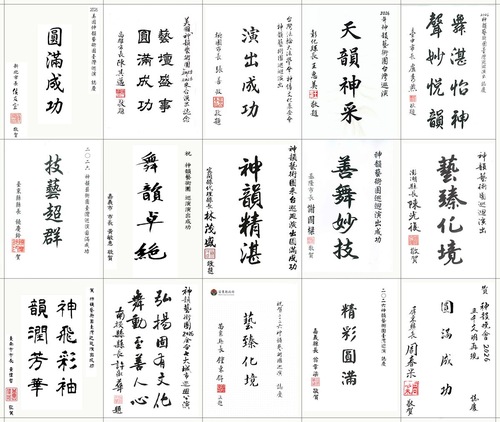 美國神韻藝術團臺灣巡演 誌慶
圓滿成功
新北市長 侯友宜 敬賀
美國神韻藝術團2026來台演出誌慶
藝壇盛事
圓滿成功
高雄市長 陳其邁 敬題
台灣法輪大法學會
神韻藝術團巡迴演出
演出成功
桃園市長 張善政 敬題
2026年神韻藝術團台灣巡演
天韻神采
彰化縣長 王惠美 敬題
2026 神韻藝術團臺灣巡演 誌慶
舞湛怡神
聲妙悅韻
臺中市長 盧秀燕 敬賀
二〇二六神韻藝術團臺灣巡演圓滿成功
技藝超群
臺東縣縣長 饒慶鈴 敬賀
祝 神韻藝術團 巡演演出成功
舞韻卓絕
嘉義市 市長 黃敏惠 敬賀
神韻藝術團來台巡迴演出圓滿成功
神韻精湛
代理縣長 林茂盛 敬題
神韻藝術團巡迴演出成功
善舞妙技
基隆市長 謝國樑 敬賀
神韻藝術團巡迴演出
藝臻化境
澎湖縣長 陳光復 敬賀
賀 神韻藝術團臺灣巡迴演出成功
神飛彩袖
韻潤芳華
敬賀
神韻藝術團2026全台七大城市巡迴公演
弘揚固有文化
舞動至善人心
南投縣縣長 許淑華 題
藝臻化境
苗栗縣長 鍾東錦 敬題
二〇二六神韻藝術團臺灣巡演 誌慶
精彩圓滿
嘉義縣長 翁章梁 敬賀
賀 神韻晚會2026
五千年文明再現
誌慶
圓滿成功
屏東縣長 周春米 敬賀